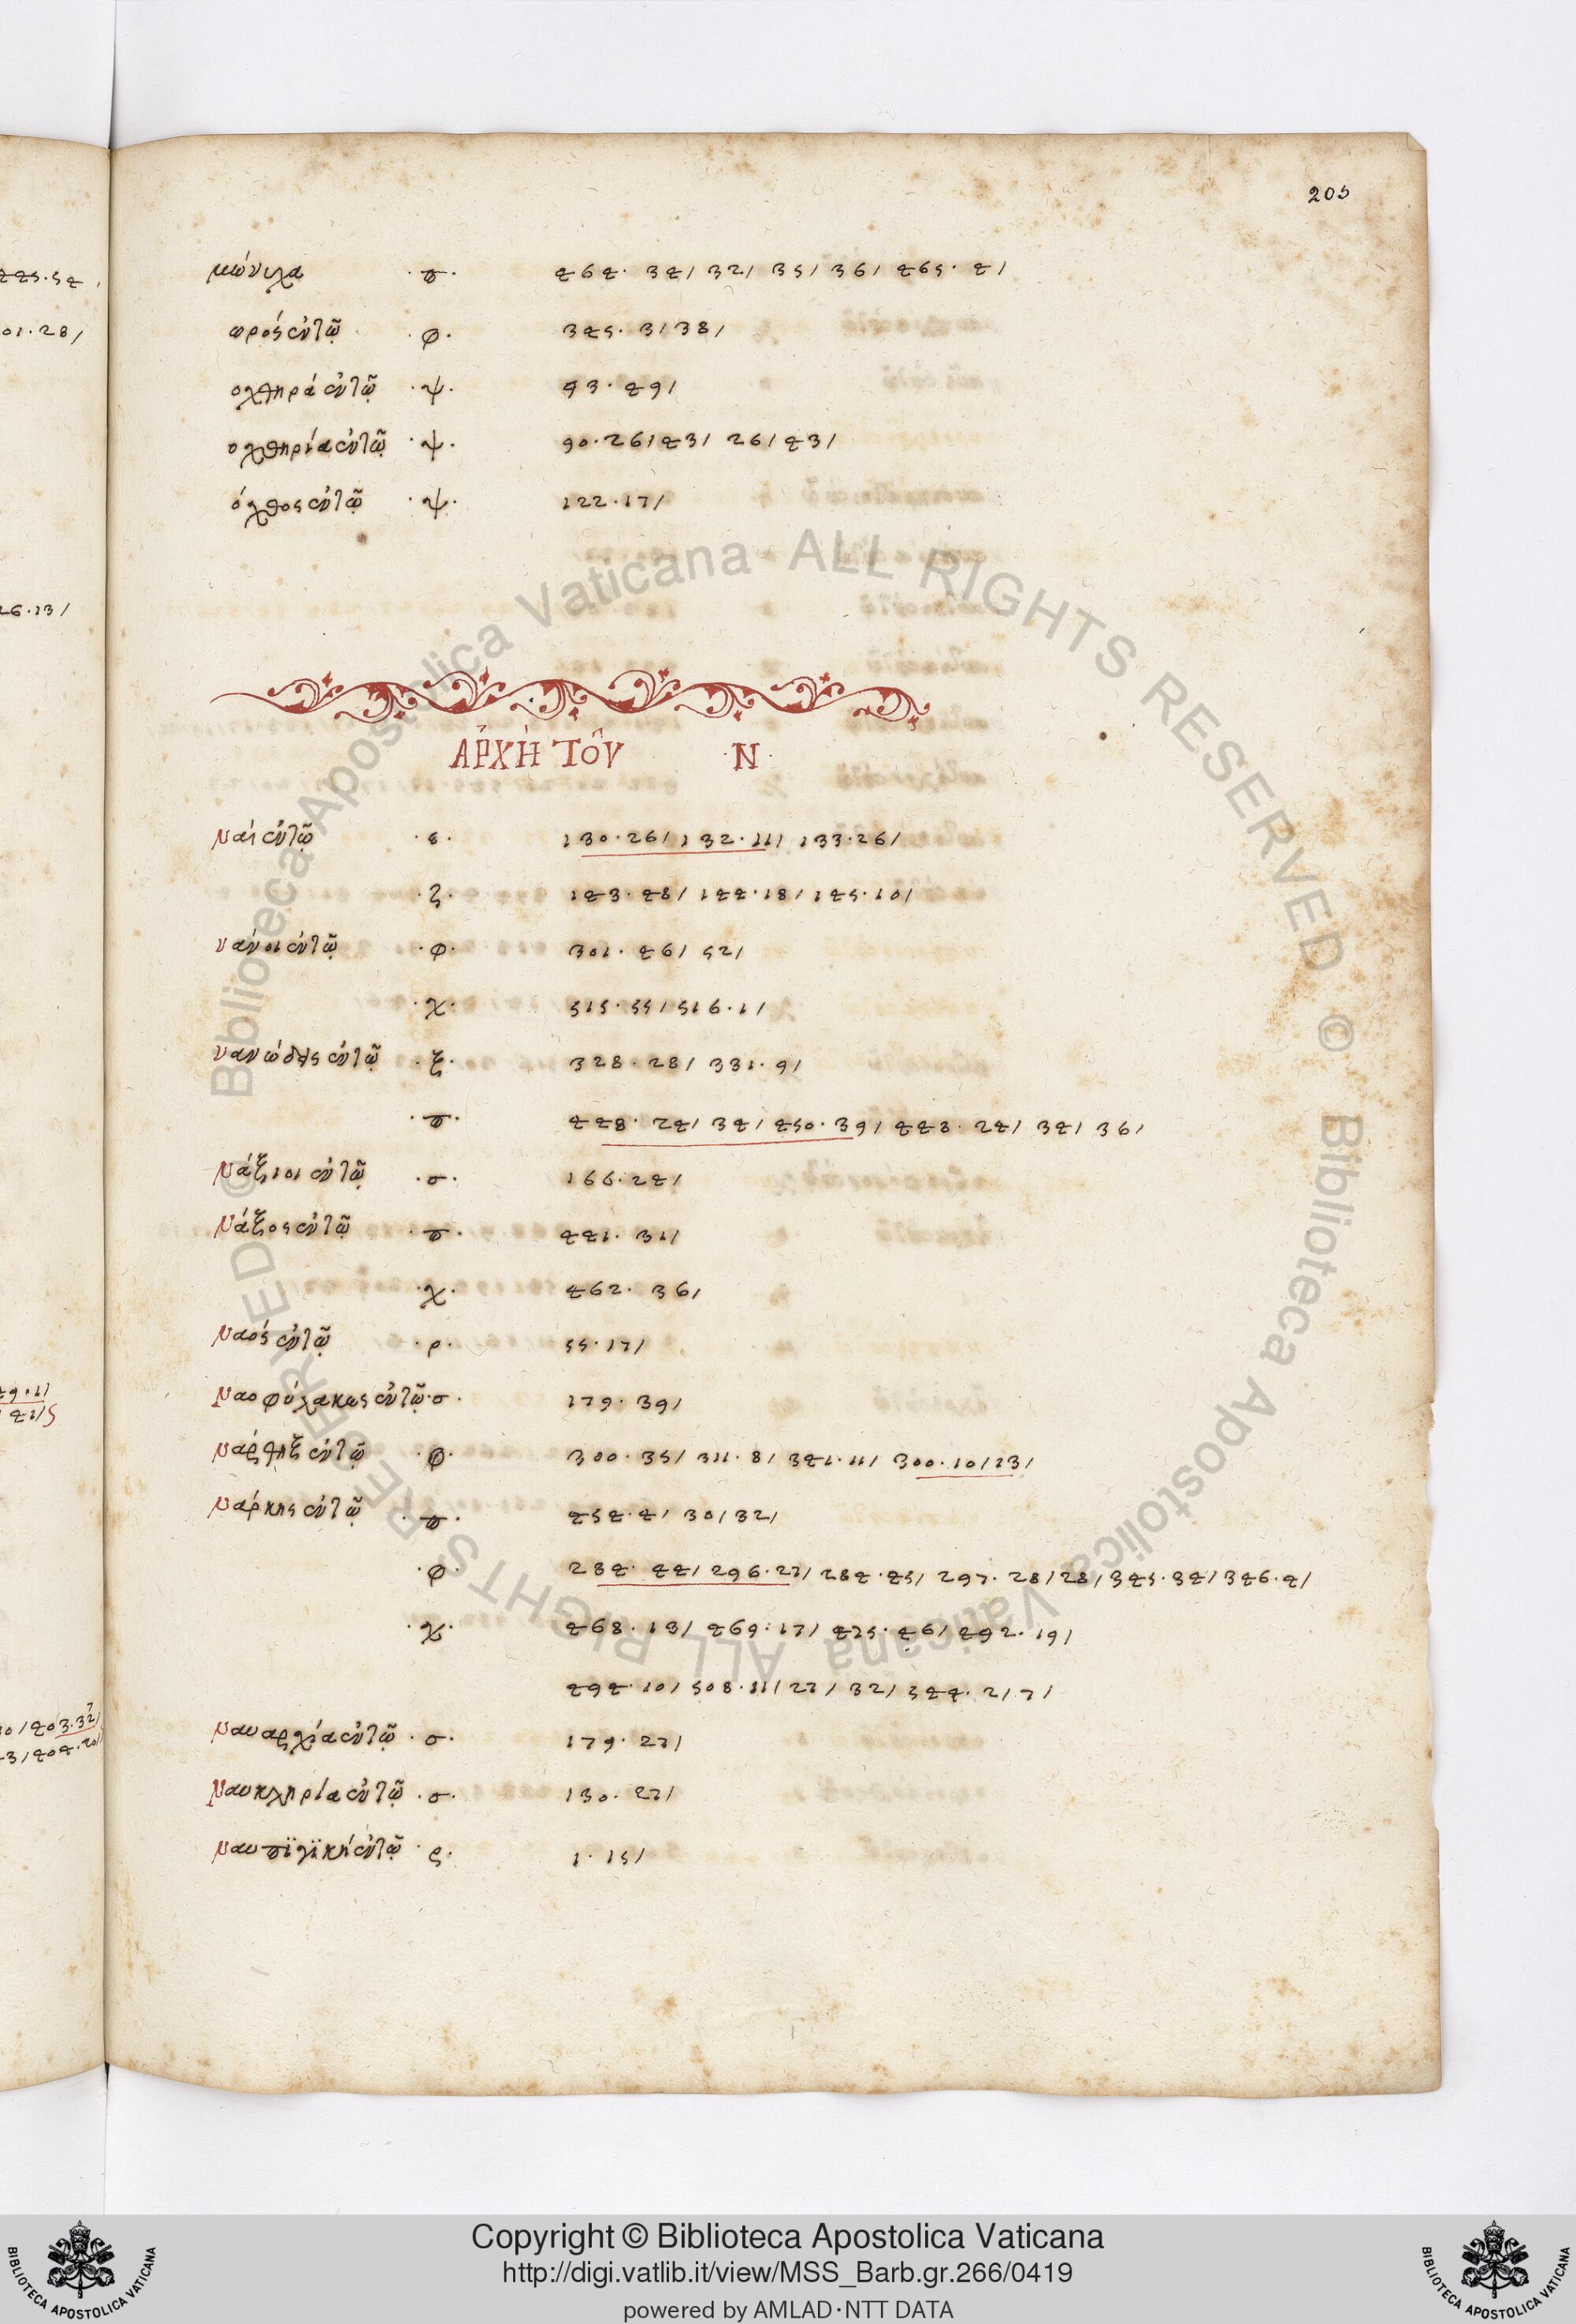 205
μώνυχα ·π· 464· 34/ 32/ 35/ 36/ 465· 4/
ωρός ἐν τῷ ·φ· 345· 3/ 38/
οχθηρά ἐν τῷ ·ψ· 43· 49/
οχθηρία ἐν τῷ ·ψ· 90·26/43/ 26/43/
όχθος ἐν τῷ ·ψ· 122·17/
ἈΡΧῊ ΤΟῦ ·Ν·
Ναὶ ἐν τῷ ·ε· 130·26/ 132·11/ 133·26/
·ζ· 143·48/ 144·18/ 145·10/
νάνοι ἐν τῷ ·φ· 301· 46/ 52/
·χ· 515·55/ 516·1/
νανώδης ἐν τῷ ·ξ· 328·28/ 331·9/
·π· 448· 24/ 34/ 450·39/ 448· 24/ 34/ 36/
Νάξιοι ἐν τῷ ·σ· 166·24/
Νάξος ἐν τῷ ·π· 441· 31/
·χ· 462· 36/
Ναός ἐν τῷ ·ρ· 55·17/
Ναοφύλακας ἐν τῷ ·σ· 179·39/
νάρθηξ ἐν τῷ ·φ· 300·35/ 311·8/ 341·11/ 300·10/13/
νάρκης ἐν τῷ ·π· 454·4/ 30/32/
·φ· 284· 44/ 296·27/ 284·45/ 297· 28/28/ 345·34/ 346·4/
·χ· 468·13/ 469·17/ 475·46/ 492·19/
494·10/ 508·11/27/ 32/ 544· 2/7/
Ναυαρχία ἐν τῷ ·σ· 179·27/
Ναυκληρία ἐν τῷ ·σ· 130· 27/
Ναυπϊγϊκή ἐν τῷ ·ς· 1·15/
Copyright © Biblioteca Apostolica Vaticana
http://digi.vatlib.it/view/MSS_Barb.gr.266/0419
powered by AMLAD·NTT DATA